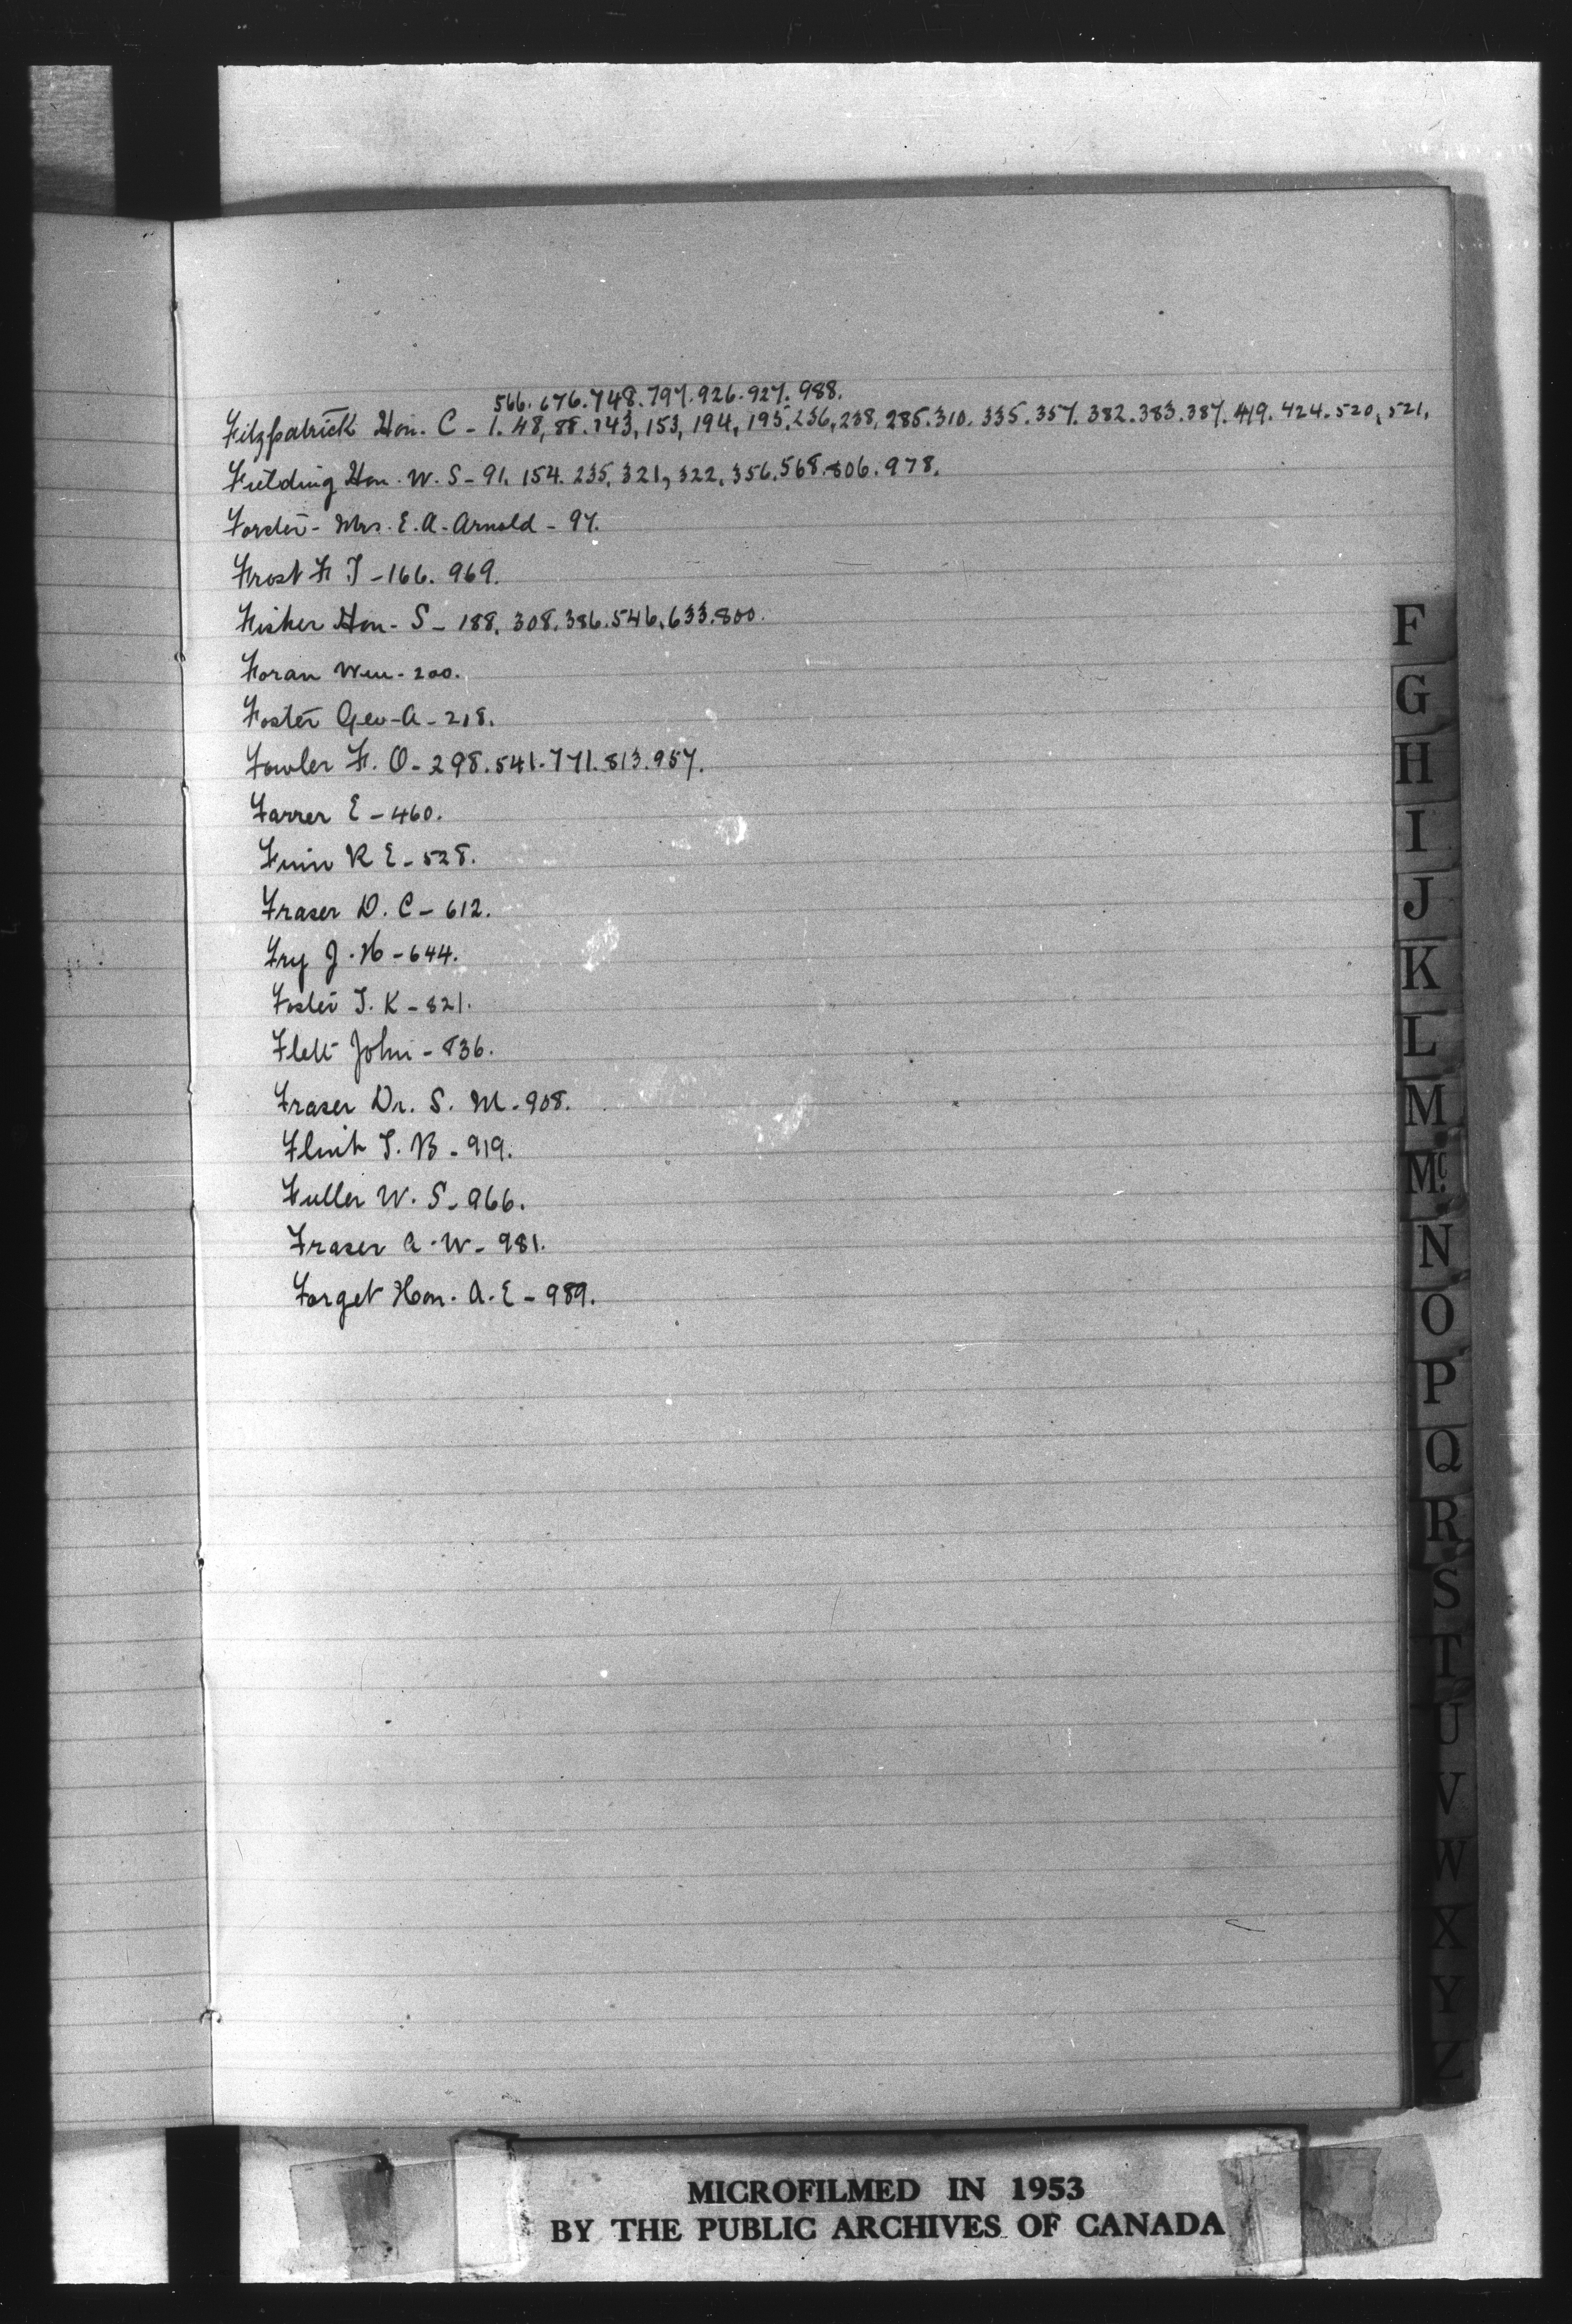 566. 676. 748. 797. 926. 927. 988.
Fitzpatrick Hon. C - 1. 48, 88. 143, 153, 194, 195. 236, 238, 285. 310. 335. 357. 382. 383. 387. 419. 424. 520, 521,
Fielding Hon. W. S - 91. 154. 235, 321, 322, 356. 568. 806. 978.
Forster - Mrs. E. A. Arnold - 97.
Frost F T - 166. 969.
Fisher Hon. S - 188, 308. 386. 546. 633. 800.
Foran Wm - 200.
Foster Geo - A - 218.
Fowler F. O - 298. 541. 771. 813. 957.
Farrer E - 460.
Finn R E - 528.
Fraser D. C - 612.
Fry J. H - 644.
Foster T. K - 821.
Flett John - 836.
Fraser Dr. S. M. - 908.
Flint T. B - 919.
Fuller W. S - 966.
Fraser A. W - 981.
Forget Hon. A. E - 989.
F
G
H
I
J
K
L
M
Mc.
N
O
P
Q
R
S
T
U
V
W
X
Y
Z
MICROFILMED IN 1953
BY THE PUBLIC ARCHIVES OF CANADA